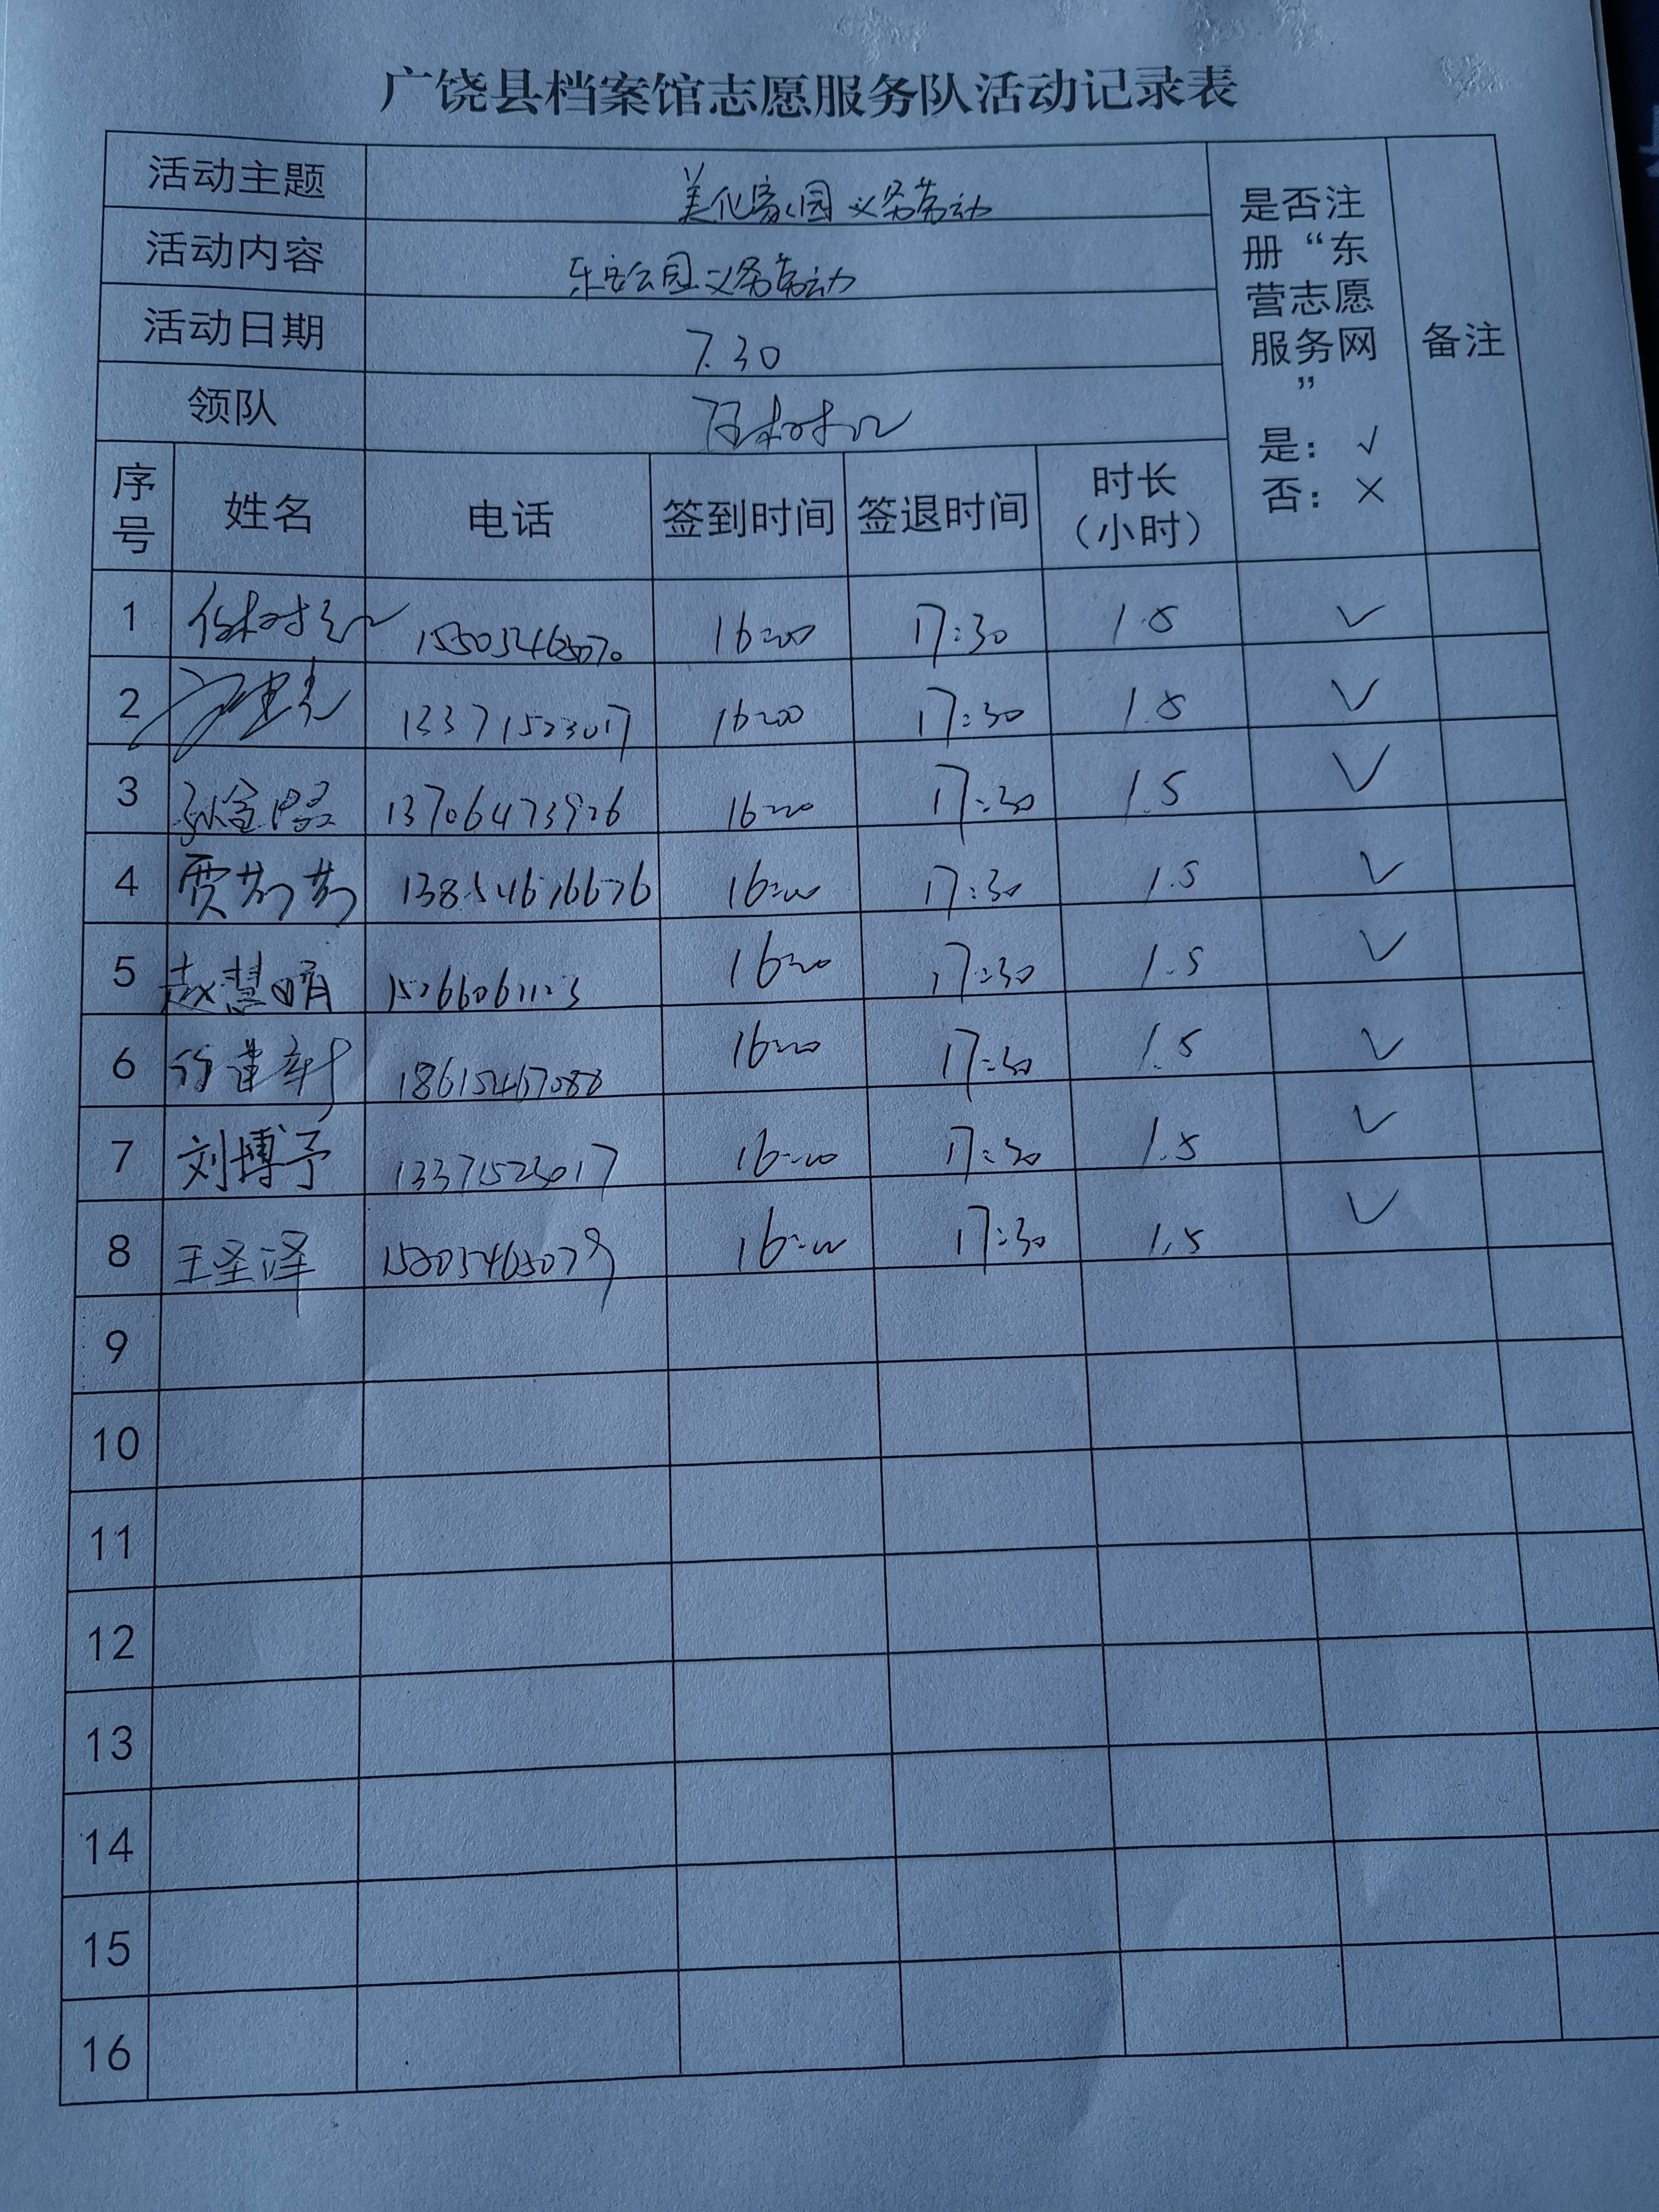 广饶县档案馆志愿服务队活动记录表
活动主题 美化家园义务劳动
活动内容 乐安公园义务劳动
活动日期 7.30
领队
是否注
册“东
营志愿
服务网
”
是：√
否：×
备注
序号 姓名 电话 签到时间 签退时间 时长（小时）
1 16:00 17:30 1.5 ✓
2 13371523017 16:00 17:30 1.5 ✓
3 13706473926 16:00 17:30 1.5 ✓
4 贾芳芳 13854616676 16:00 17:30 1.5 ✓
5 赵慧晴 15266061123 16:00 17:30 1.5 ✓
6 18615467088 16:00 17:30 1.5 ✓
7 刘博予 13371523017 16:00 17:30 1.5 ✓
8 王圣泽 16:00 17:30 1.5 ✓
9
10
11
12
13
14
15
16